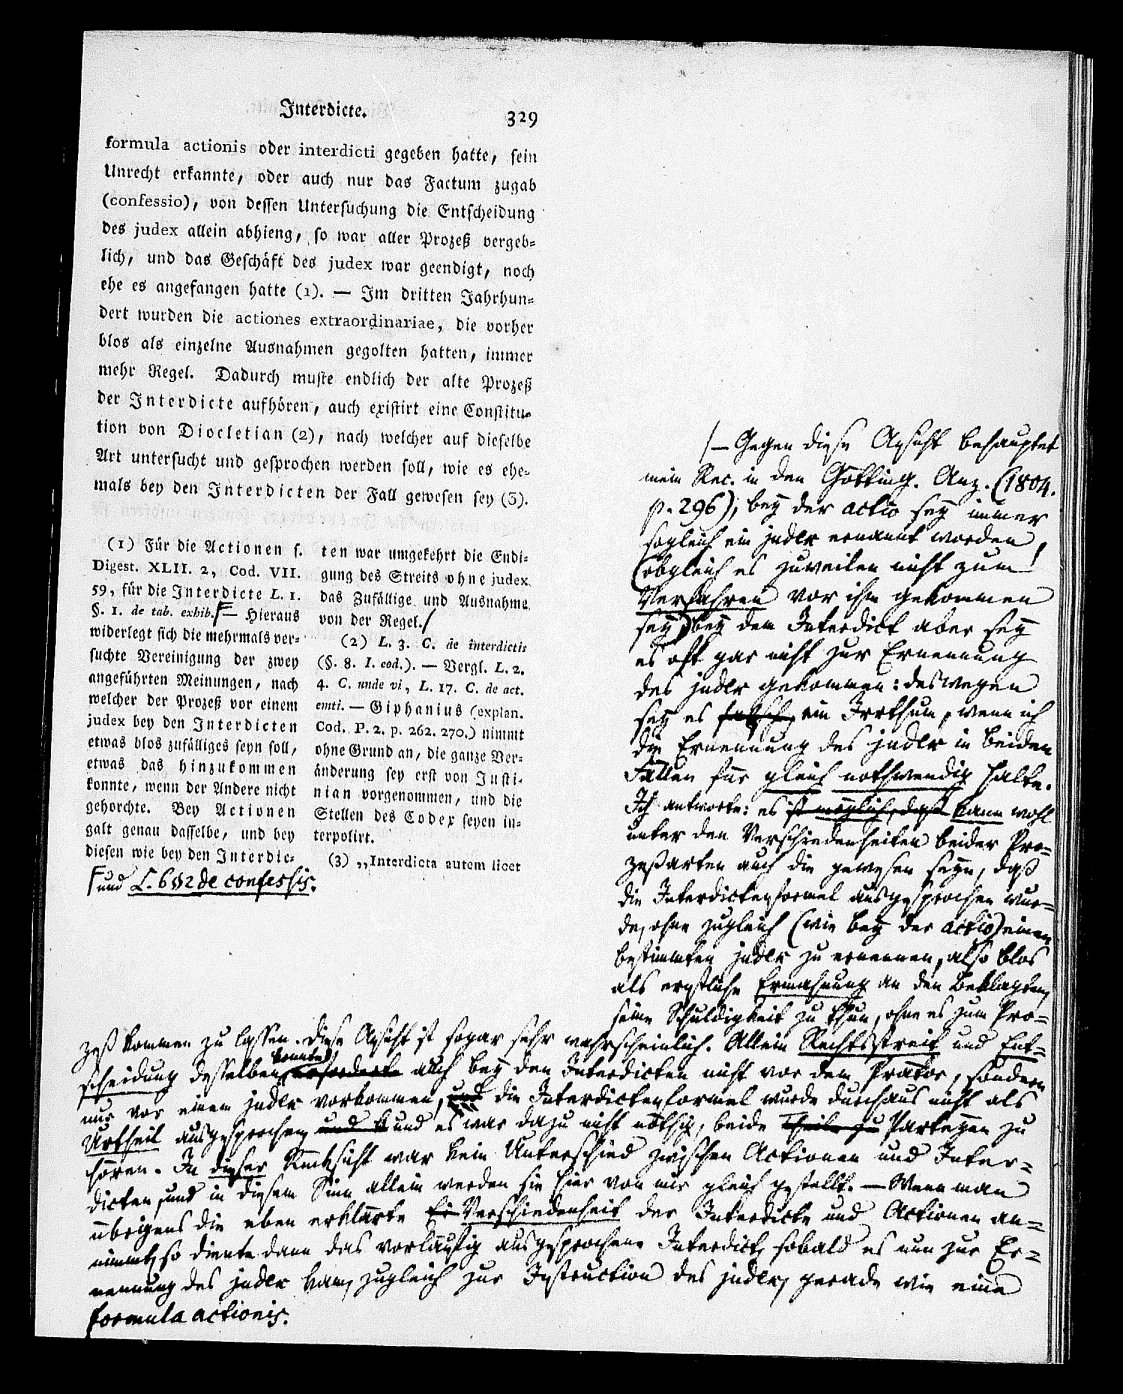 Interdicte. 329
formula actionis oder interdicti gegeben hatte, sein
Unrecht erkannte, oder auch nur das Factum zugab
(confessio), von dessen Untersuchung die Entscheidung
des judex allein abhieng, so war aller Prozeß vergeb-
lich, und das Geschäft des judex war geendigt, noch
ehe es angefangen hatte (1). — Im dritten Jahrhun-
dert wurden die actiones extraordinariae, die vorher
blos als einzelne Ausnahmen gegolten hatten, immer
mehr Regel. Dadurch muste endlich der alte Prozeß
der Interdicte aufhören, auch existirt eine Constitu-
tion von Diocletian (2), nach welcher auf dieselbe
Art untersucht und gesprochen werden soll, wie es ehe-
mals bey den Interdicten der Fall gewesen sey (3).
(1) Für die Actionen s.
Digest. XLII. 2, Cod. VII.
59, für die Interdicte L. 1.
§. 1. de tab. exhib. — Hieraus
widerlegt sich die mehrmals ver-
suchte Vereinigung der zwey
angeführten Meinungen, nach
welcher der Prozeß vor einem
judex bey den Interdicten
etwas blos zufälliges seyn soll,
etwas das hinzukommen
konnte, wenn der Andere nicht
gehorchte. Bey Actionen
galt genau dasselbe, und bey
diesen wie bey den Interdic-
ten war umgekehrt die Endi-
gung des Streits ohne judex
das Zufällige und Ausnahme
von der Regel.
(2) L. 3. C. de interdictis
(§. 8. I. eod.). — Vergl. L. 2.
4. C. unde vi, L. 17. C. de act.
emti. — Giphanius (explan.
Cod. P. 2. p. 262. 270.) nimmt
ohne Grund an, die ganze Ver-
änderung sey erst von Justi-
nian vorgenommen, und die
Stellen des Codex seyen in-
terpolirt.
(3) „Interdicta autem licet
und L. 6 §2 de confessis.
— Gegen diese Ansicht behauptet
mein Rec. in den Götting. Anz. (1804.
p. 296), bey der actio sey immer
sogleich ein judex ernannt worden,
(obgleich es zuweilen nicht zum
Verfahren vor ihm gekommen
sey) bey dem Interdict aber sey
es oft gar nicht zur Ernennung
des judex gekommen: deswegen
sey es falsch, ein Irrthum, wenn ich
die Ernennung des judex in beiden
Fällen für gleich nothwendig halte.
Ich antworte: es ist möglich, daß kann wohl
unter den Verschiedenheiten beider Pro-
zeßarten auch die gewesen seyn, daß
die Interdictenformel ausgesprochen wur-
de, ohne zugleich (wie bey der actio) einen
bestimmten judex zu ernennen, also blos
als ernstliche Ermahnung an den Beklagten,
seine Schuldigkeit zu thun, ohne es zum Pro-
zeß kommen zu lassen. Diese Ansicht ist sogar sehr wahrscheinlich. Allein Rechtsstreit und Ent-
scheidung desselben konnte auch bey den Interdicten nicht vor dem Prätor, sondern
nur vor einem judex vorkommen, und die Interdictenformel wurde durchaus nicht als
Urtheil ausgesprochen und es war dazu nicht nöthig, beide Theile zu Parteyen zu
hören. In dieser Rücksicht war kein Unterschied zwischen Actionen und Inter-
dicten, und in diesem Sinn allein werden sie hier von mir gleich gestellt. — Wenn man
übrigens die eben erklärte Verschiedenheit der Interdicte und Actionen an-
nimmt, so diente dann das vorläufig ausgesprochene Interdict, sobald es nun zur Er-
nennung des judex kam, zugleich zur Instruction des judex, gerade wie eine
formula actionis.